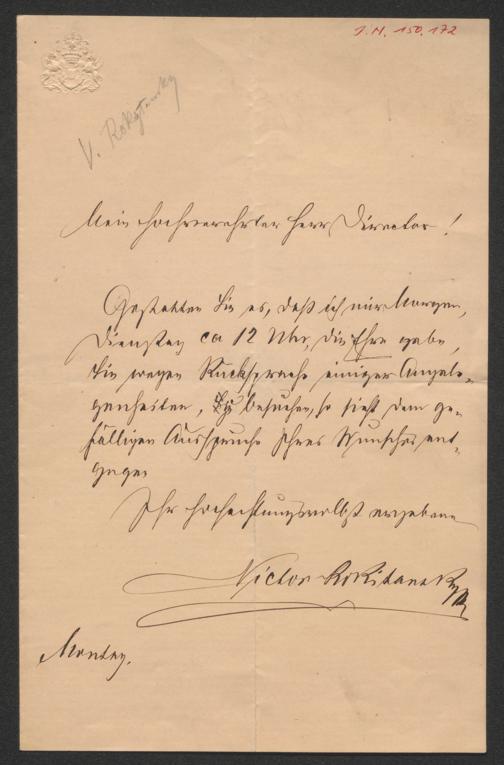 J.N. 150.172
V. Rokytansky
Mein hochverehrter Herr Director!
Gestatten Sie es, daß ich mir Morgen,
Dienstag ca 12 Uhr, die Ehre gebe,
Sie wegen Rücksprache einiger Angele-
genheiten, zu besuchen, so sieht dem ge-
fälligen Ausspruche Ihres Wunsches ent-
gegen
Ihr hochachtungsvollst ergebener
Victor Rokitansky
Montag.